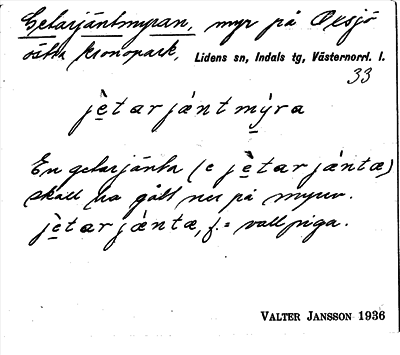 Getarjäntmyran, myr på Oxsjö
östra kronopark, Lidens sn, Indals tg, Västernorrl. l.
33
jè̱tarjántmỳ̱ra
En getarjänta (e jè̱tarjǽntæ)
skall ha gått ner på myren.
jè̱tarjǽntæ, f. = vallpiga.
VALTER JANSSON 1936